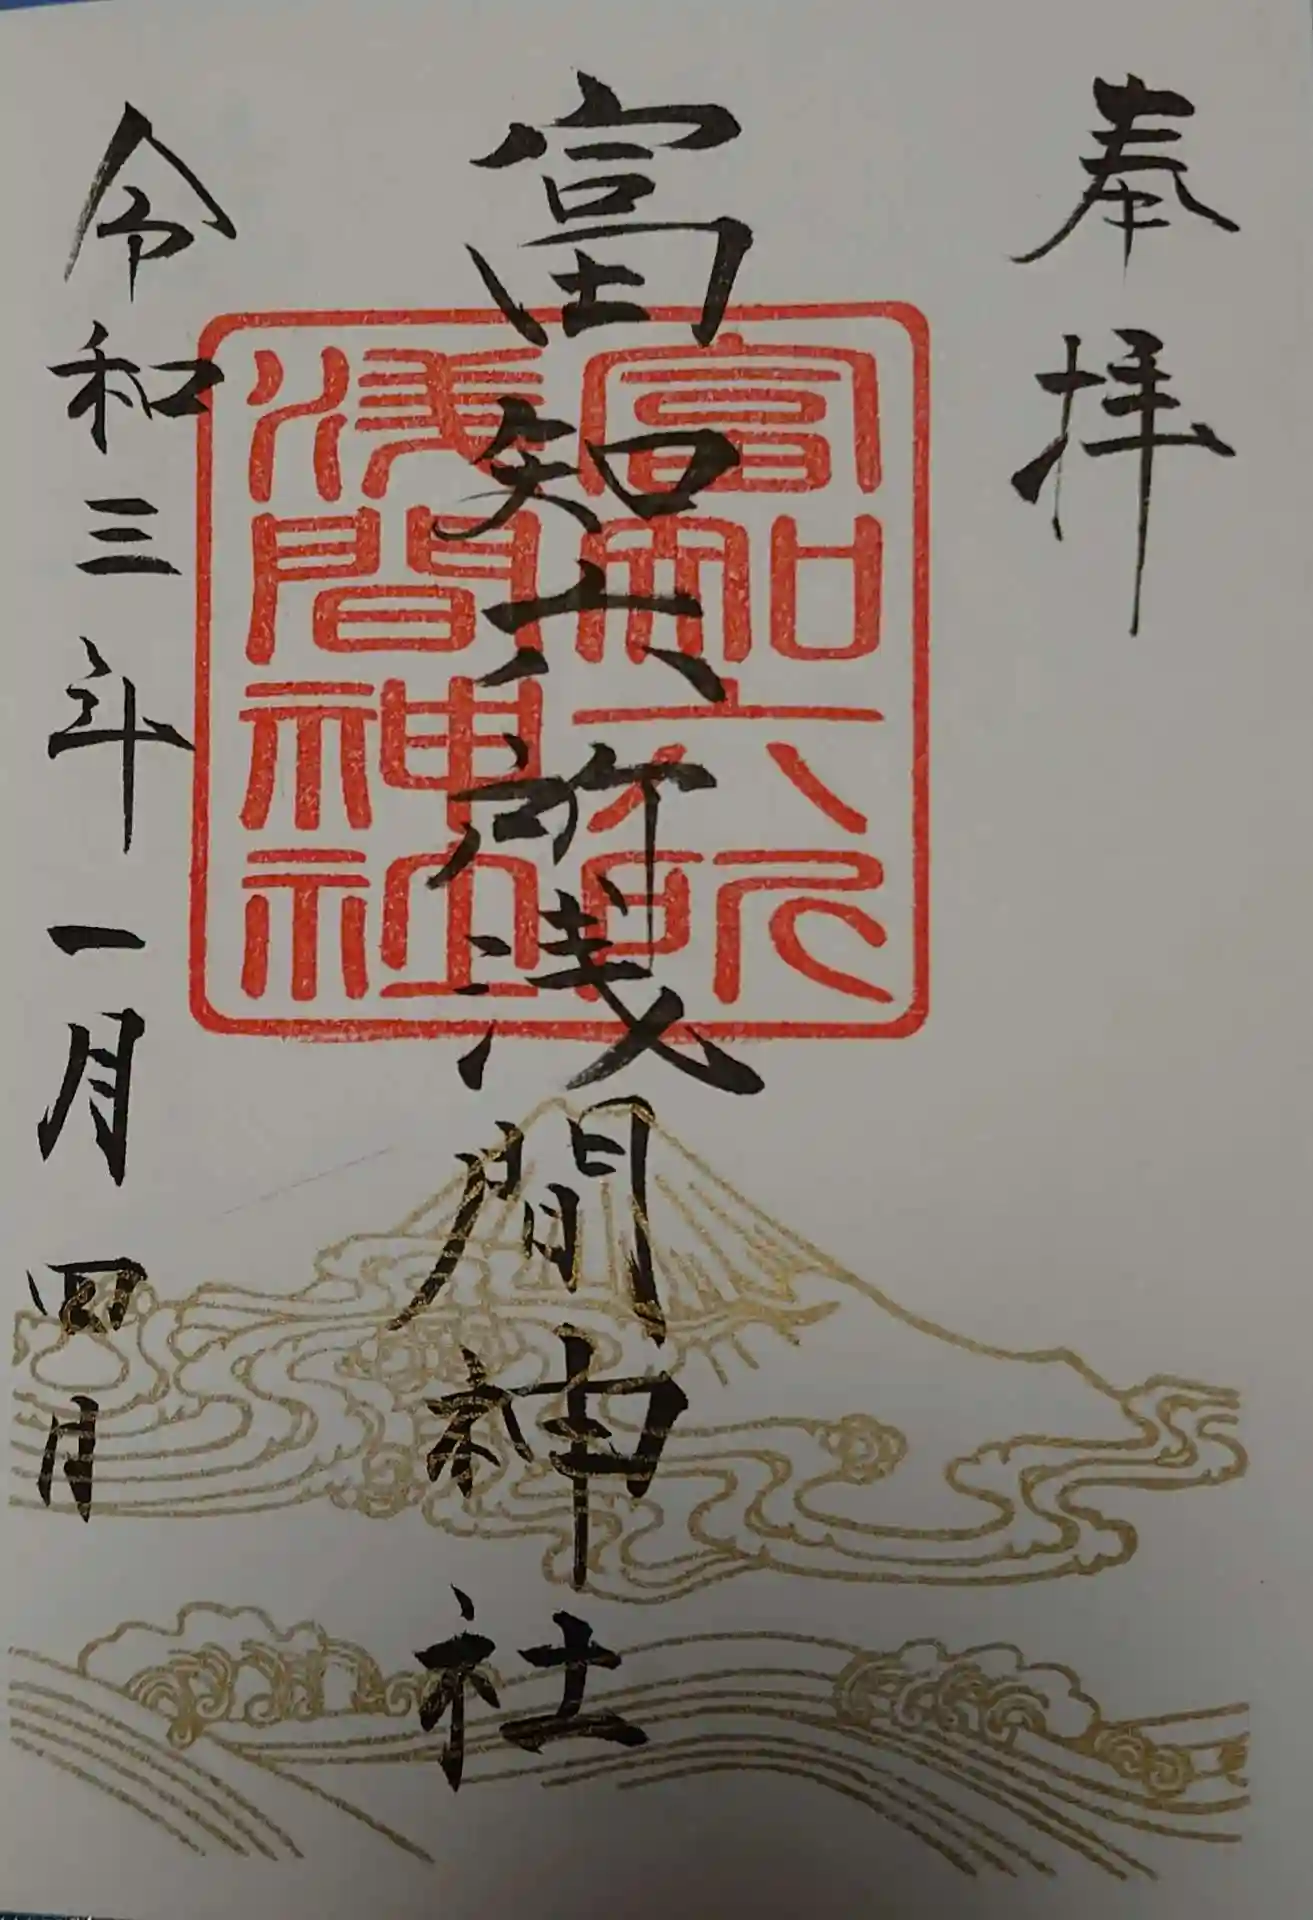 奉拝
富知六所浅間神社
富知六所
浅間神社
令和三年一月四日